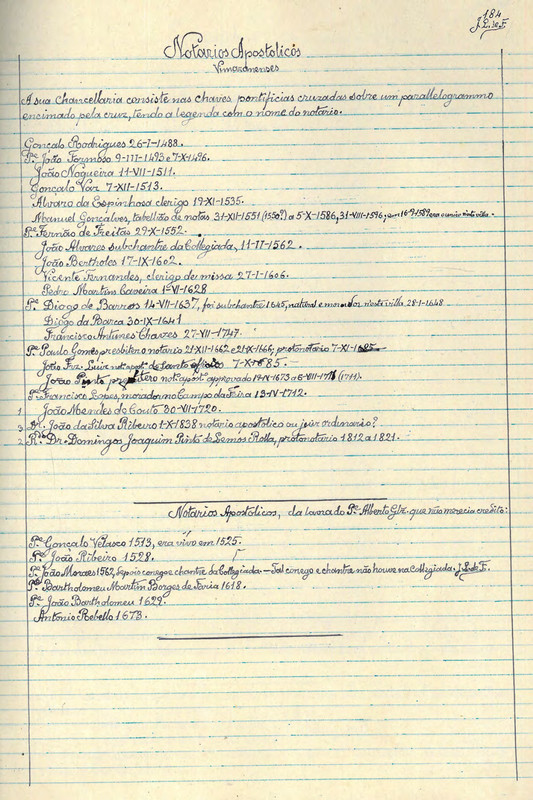 184
J. L. de F.
Notarios Apostolicos
Vimaranenses
A sua Chancellaria consiste nas chaves pontificias cruzadas sobre um parallelogrammo
encimado pela cruz, tendo a legenda com o nome do notario.
Gonçalo Rodrigues 26-I-1488.
Pe. João Formoso 9-III-1493 e 7-X-1496.
João Nogueira 11-VII-1511.
Gonçalo Vaz 7-XII-1513.
Alvaro da Espinhosa clerigo 19-XI-1535.
Manuel Gonçalves, tabellião de notas 31-XII-1551 (1550?) a 5-X-1586, 31-VIII-1596, em 16-9-1589 era
Pe. Fernão de Freitas 29-X-1552.
João Alvares subchantre da Collegiada, 11-II-1562.
João Bartholes 17-IX-1602.
Vicente Fernandes, clerigo de missa 27-I-1606.
Pedro Martins Caveira 1-VI-1628
Pe. Diogo de Barros 14-VII-1637, foi subchantre 1645, natural e morador nesta villa 28-1-1648
Diogo da Barca 30-IX-1641
Francisco Antunes Chaves 27-VII-1747.
Pe. Paulo Gomes presbitero notario 21-XII-1662 e 21-X-1666, protonotario 7-XI-1685
João Frz. Luiz not. apost. do santo officio 7-X-1685.
João Pinto presbitero not. apost. approvado 14-IX-1673 a 6-VIII-1711 (1711).
Pe. Francisco Lopes, morador no Campo da Feira 13-IV-1712.
1 João Mendes de Couto 30-VII-1720.
3 Dr. João da Silva Ribeiro 1-X-1838 notário apostolico ou juiz ordenario?
2 Rdo. Dr. Domingos Joaquim Pinto de Lemos Rolla, protonotário 1812 a 1821.
Notarios Apostólicos, da lavra do Pe. Alberto Glz. que não merecia credito:
Pe. Gonçalo Velasco 1513, era vivo em 1525.
Pe. João Ribeiro 1528.
Pe. João Moraes 1562, depois conego e chantre da Collegiada. — Tal conego e chantre não houve na Collegiada. J. L. de F.
Pe. Bartholomeu Martins Borges de Faria 1618.
Pe. João Bartholomeu 1629.
Antonio Rebello 1673.